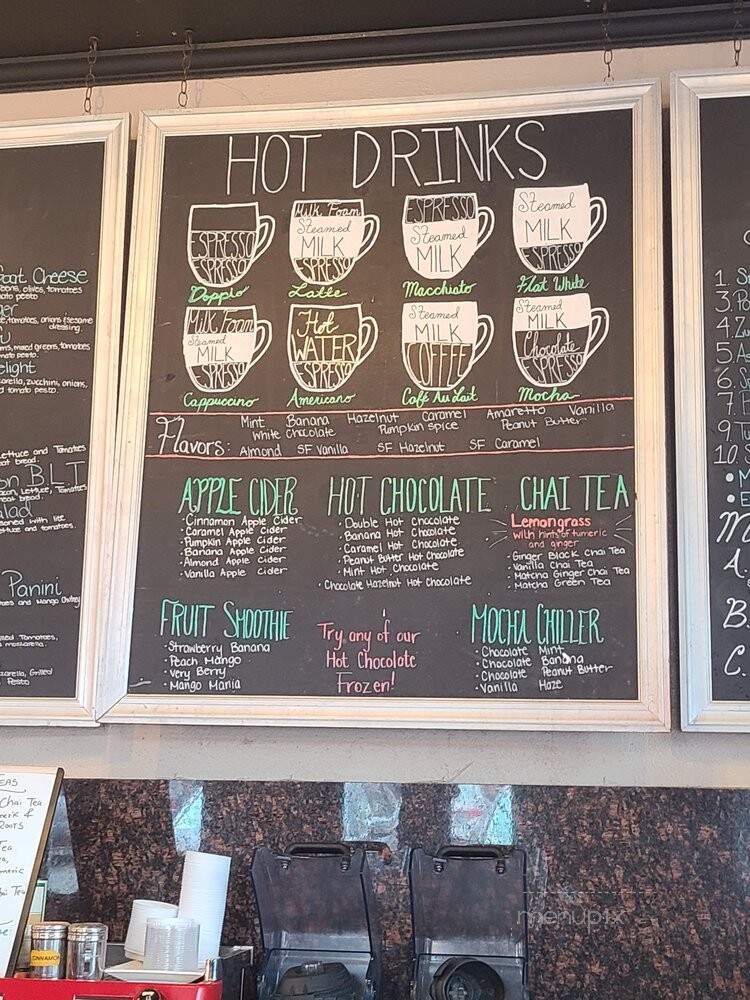 HOT DRINKS
ESPRESSO
ESPRESSO
Doppio
Milk Foam
Steamed
MILK
ESPRESSO
Latte
ESPRESSO
Steamed
MILK
Macchiato
Steamed
MILK
ESPRESSO
Flat White
Milk Foam
Steamed
MILK
ESPRESSO
Cappuccino
Hot
WATER
ESPRESSO
Americano
Steamed
MILK
COFFEE
Café Au Lait
Steamed
MILK
Chocolate
ESPRESSO
Mocha
Flavors:
Mint Banana Hazelnut Caramel Amaretto Vanilla
White Chocolate Pumpkin Spice Peanut Butter
Almond SF Vanilla SF Hazelnut SF Caramel
APPLE CIDER
· Cinnamon Apple Cider
· Caramel Apple Cider
· Pumpkin Apple Cider
· Banana Apple Cider
· Almond Apple Cider
· Vanilla Apple Cider
HOT CHOCOLATE
· Double Hot Chocolate
· Banana Hot Chocolate
· Caramel Hot Chocolate
· Peanut Butter Hot Chocolate
· Mint Hot Chocolate
· Chocolate Hazelnut Hot Chocolate
CHAI TEA
Lemongrass
with hints of tumeric
and ginger
· Ginger Black Chai Tea
· Vanilla Chai Tea
· Matcha Ginger Chai Tea
· Matcha Green Tea
FRUIT SMOOTHIE
· Strawberry Banana
· Peach Mango
· Very Berry
· Mango Mania
Try any of our
Hot Chocolate
Frozen!
MOCHA CHILLER
· Chocolate Mint
· Chocolate Banana
· Chocolate Peanut Butter
· Vanilla Haze
Goat Cheese
olives, tomatoes
tomatoes, onions & sesame
dressing.
mixed greens, tomatoes
elight
zucchini, onions,
tomato pesto.
Lettuce and Tomatoes
BLT
Bacon, Lettuce, Tomatoes
Panini
and Mango Chutney
Grilled
Pesto
1.
3.
4.
5.
6.
7.
9.
10.
A.
B.
C.
TEAS
Chai Tea
Tea
CINNAMON
menupix